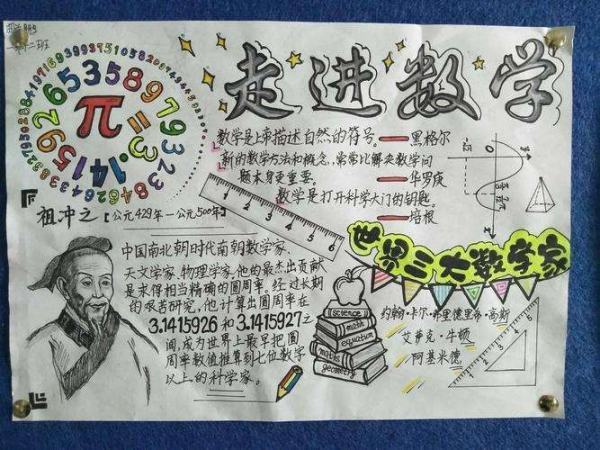 走进数学
π=3.14159265358979323
数学是上帝描述自然的符号。——黑格尔
新的数学方法和概念，常常比解决数学问
题本身更重要。——华罗庚
数学是打开科学大门的钥匙。
——培根
祖冲之【公元429年－公元500年】
中国南北朝时代南朝数学家、
天文学家、物理学家，他的最杰出贡献
是求得相当精确的圆周率。经过长期
的艰苦研究，他计算出圆周率在
3.1415926和3.1415927之
间，成为世界上最早把圆
周率数值推算到七位数字
以上的科学家。
1 2 3 4 5 6
世界三大数学家
约翰·卡尔·弗里德里希·高斯
艾萨克·牛顿
阿基米德
science
math
equation
maths
geometry